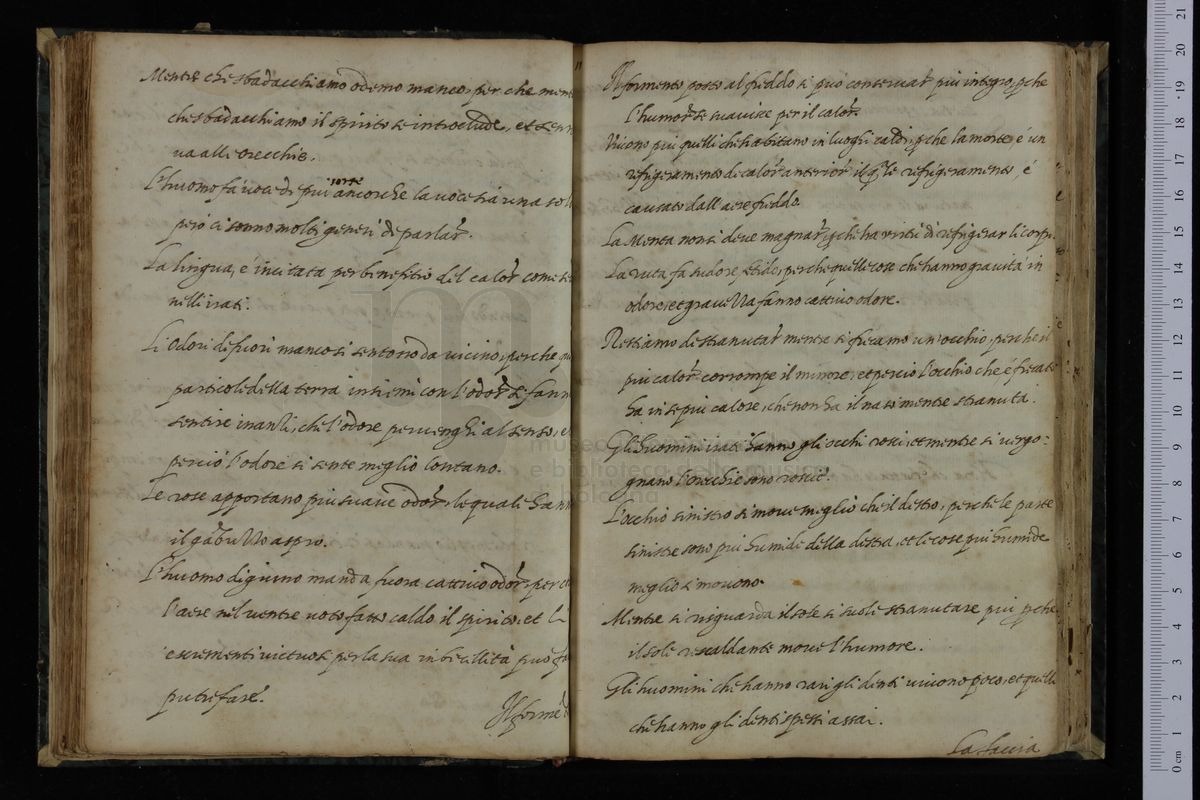 Mentre che sbadacchiamo odemo manco, per che men
che sbadacchiamo il spirito se introclude, et se n
va alli orecchie.
L'huomo fa voce di piu sorte ancor che la voce sia una sol
però si sonno molti generi di parlar.
La lingua, é incitata per benefitio del calor come si
nelli irati.
Li Odori de fiori manco si sentono da vicino, perche
particole della terra insiemi con l'odor si fann
sentire inanzi, ché l'odore pervenghi al senso, e
perciò l'odore si sente meglio lontano.
Le rose apportano piu suave odor, le quali hann
il gabuzzo aspro.
L'huomo digiuno manda fuora cattivo odor, per
l'aere nel ventre voto fatto caldo il spirito, et li
escrementi per la sua imbecillità può
putrefare.
Il forme
Il formento posto al freddo si può conservar piu integro, pche
l'humor si suanisce per il calor.
Vivono piu quelli che habitano in luoghi caldi, pche la morte, é un
refrigeramento de calor anterior il qle refrigeramento, é
causato dall aere freddo.
La Menta non si deve magnar, pche ha virtù di refrigerar li corpi.
La ruta fa sudore fetido, perche quelle cose che hanno gravità in
odore, et gravezza fanno cattivo odore.
Restiamo de stranutar mentre si fricamo un'occhio, perche il
piu calor corrompe il minore, et perciò l'occhio che é fricato
ha in se piu calore, che non ha il naso mentre stranuta.
Gli huomini irati hanno gli occhi rossi, et mentre si vergo:
gnano l'orecchie sono rosse.
L'occhio sinistro si move meglio che il destro, perche le parte
sinistre sono piu humide della destra, et le cose piu humide
meglio si movono.
Mentre si risguarda il sole si suole stranutare piu pche
il sole rescaldante move l'humore.
Gli huomini che hanno rari gli denti vivono poco, et quelli
che hanno gli denti spessi assai.
La faccia
museo
e biblioteca della musica
bologna
0 cm 1 2 3 4 5 6 7 8 9 10 11 12 13 14 15 16 17 18 19 20 21